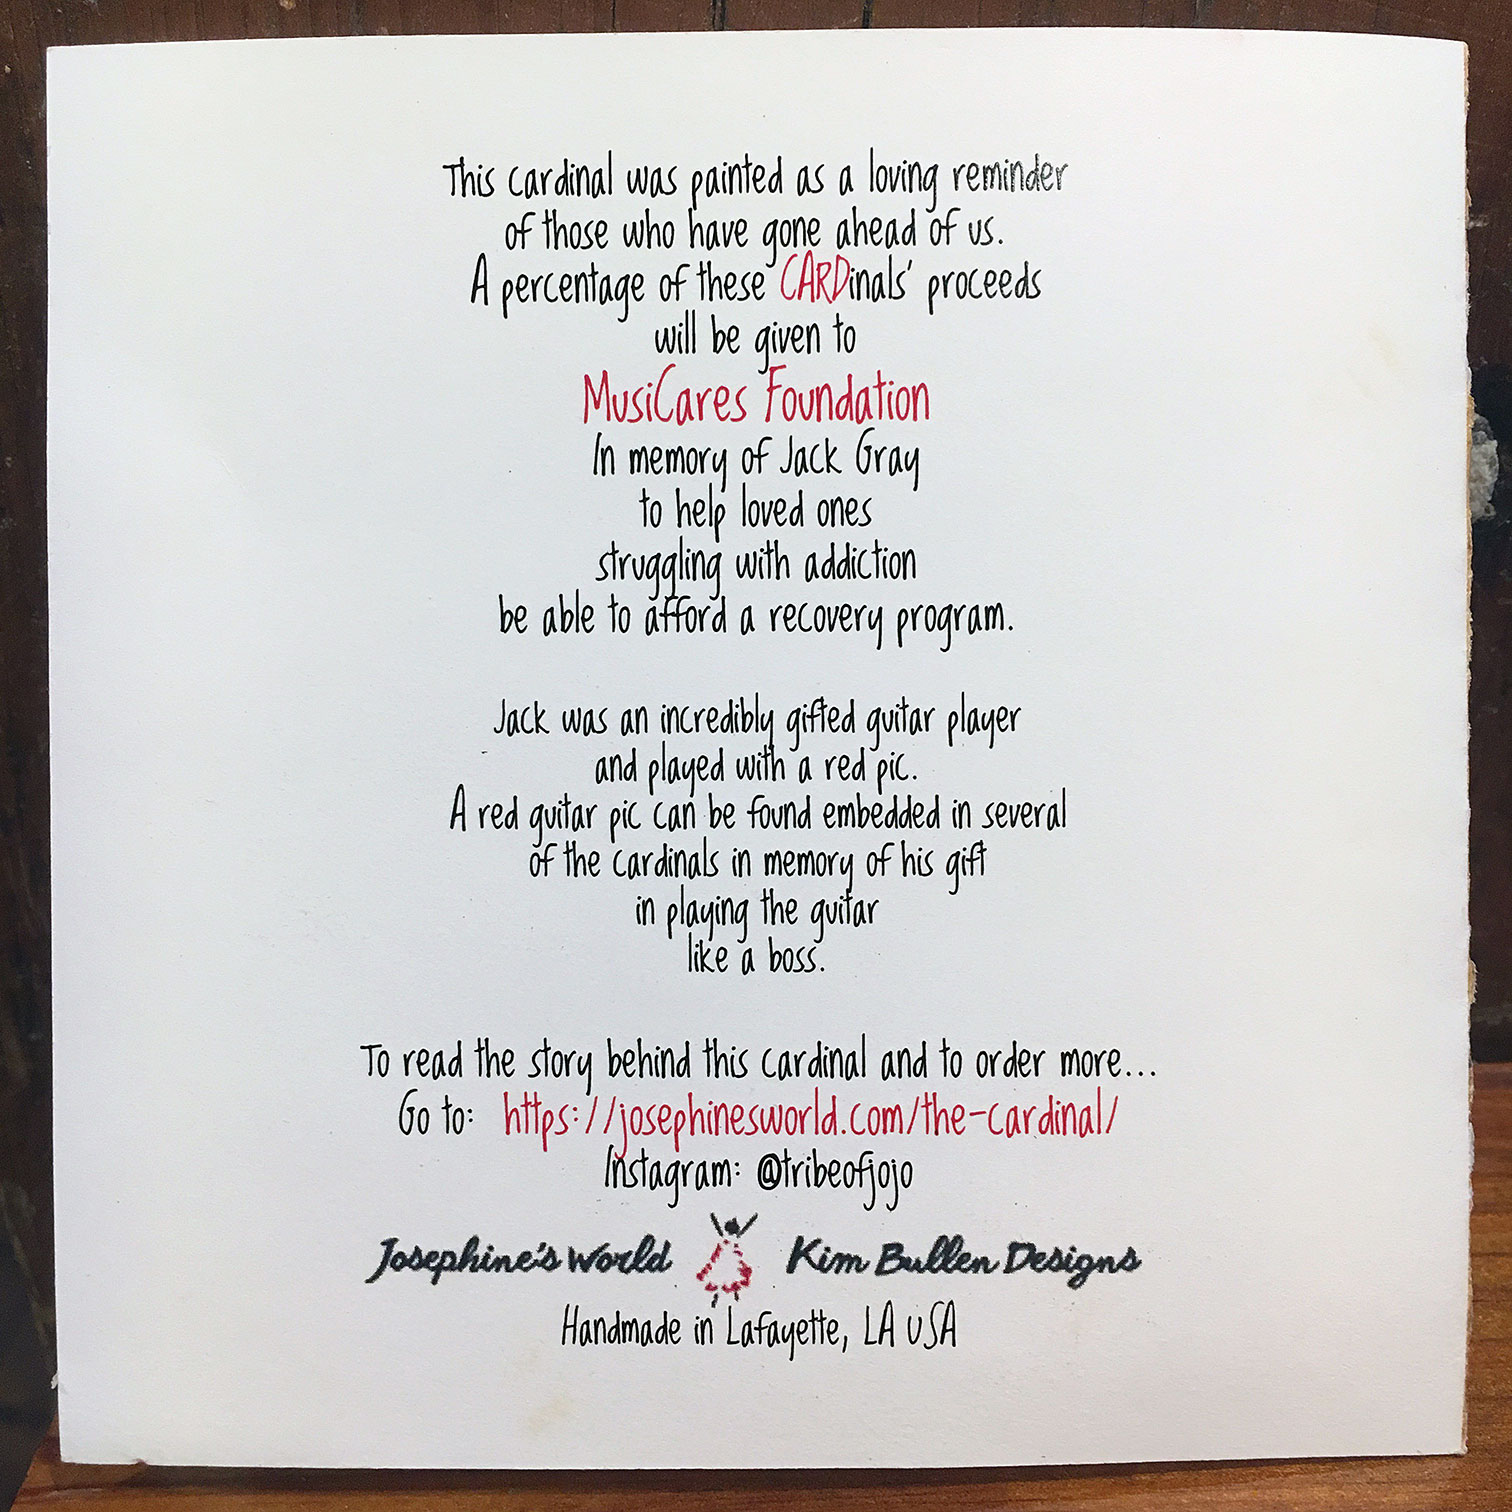 This cardinal was painted as a loving reminder
of those who have gone ahead of us.
A percentage of these CARDinals' proceeds
will be given to
MusiCares Foundation
In memory of Jack Gray
to help loved ones
struggling with addiction
be able to afford a recovery program.
Jack was an incredibly gifted guitar player
and played with a red pic.
A red guitar pic can be found embedded in several
of the cardinals in memory of his gift
in playing the guitar
like a boss.
To read the story behind this cardinal and to order more...
Go to: https://josephinesworld.com/the-cardinal/
Instagram: @tribeofjojo
Josephine's World Kim Bullen Designs
Handmade in Lafayette, LA USA